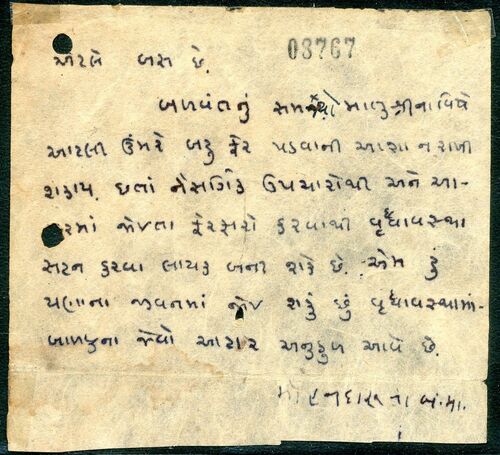 એટલે બસ છે.
03767
બળવંતનું સમજ્યો માતુશ્રીના વિષે
આટલી ઉંમરે બહુ ફેર પડવાની આશા ન રાખી
શકાય. છતાં નૈસર્ગિક ઉપચારોથી અને આ-
હારમાં જોઇતા ફેરફારો કરવાથી વૃધ્ધાવસ્થા
સહન કરવા લાયક બની શકે છે. એમ હું
ઘણાના જીવનમાં જોઇ શક્યું છું વૃધ્ધાવસ્થામાં-
બાળકના જેવો આહાર અનુકુળ આવે છે.
મોહનદાસ ના વં.મા.